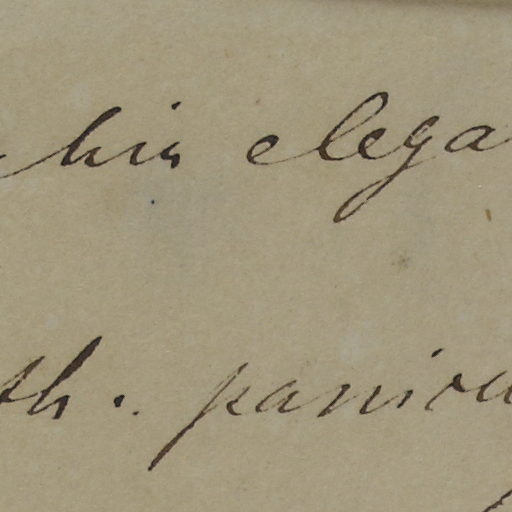 hia elega
th. panicu